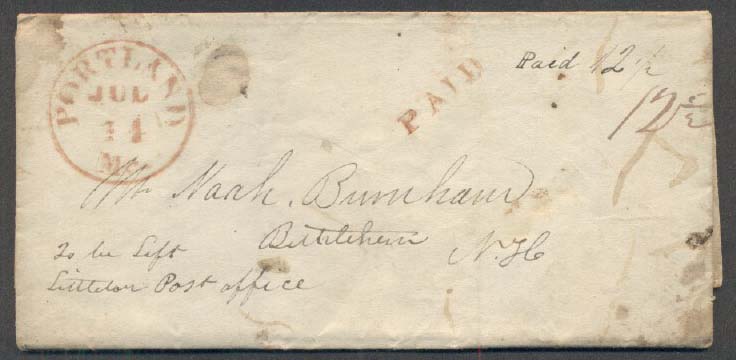 PORTLAND
JUL
14
Me.
PAID
Paid 12 1/2
12 1/2
Mr Noah Burnham
Bethlehem
N. H
To be Left
Littleton Post office